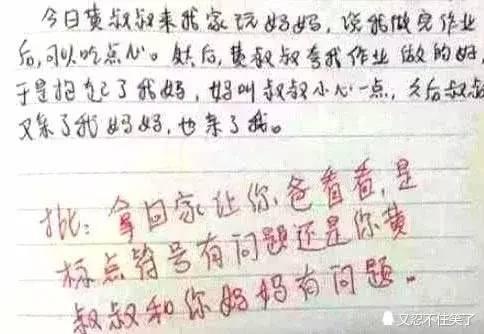 今日黄叔叔来我家玩妈妈，说我做完作业
后，可以吃点心。然后，黄叔叔夸我作业做的好，
于是抱起了我妈，妈叫叔叔小心一点，之后叔叔
又亲了我妈妈，也亲了我。
批：拿回家让你爸看看，是
标点符号有问题还是你黄
叔叔和你妈妈有问题。
又忍不住笑了